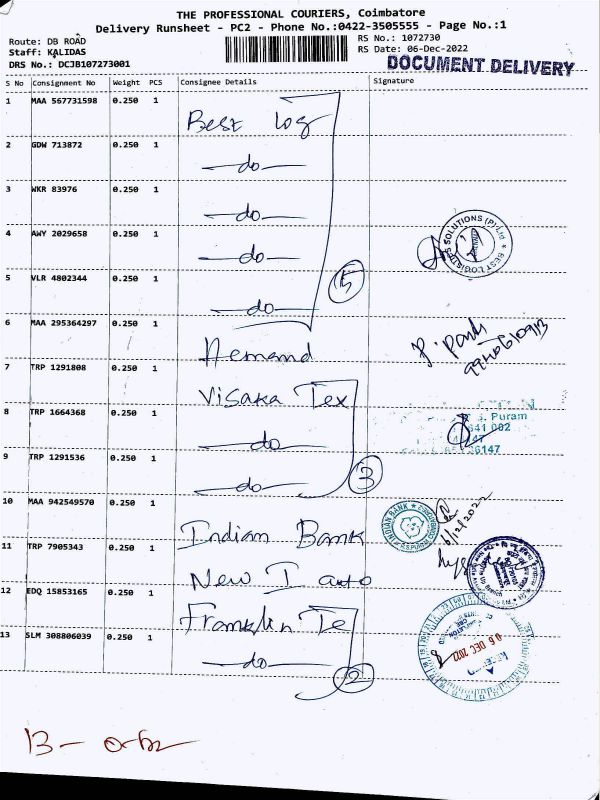 THE PROFESSIONAL COURIERS, Coimbatore
Delivery Runsheet - PC2 - Phone No.:0422-3505555 - Page No.:1
Route: DB ROAD
RS No.: 1072730
Staff: KALIDAS
RS Date: 06-Dec-2022
DRS No.: DCJB107273001
DOCUMENT DELIVERY
S No Consignment No Weight PCS Consignee Details Signature
1 MAA 567731598 0.250 1 Best Log
2 GDW 713872 0.250 1 -do-
3 WKR 83976 0.250 1 -do-
4 AWY 2029658 0.250 1 -do-
5 VLR 4802344 0.250 1 -do- 5
6 MAA 295364297 0.250 1
7 TRP 1291808 0.250 1 Visaka Tex
8 TRP 1664368 0.250 1 -do-
9 TRP 1291536 0.250 1 -do- 3
10 MAA 942549570 0.250 1 Indian Bank
11 TRP 7905343 0.250 1 New I auto
12 EDQ 15853165 0.250 1 Franklin Te
13 SLM 308806039 0.250 1 -do- 2
SOLUTIONS (P) Ltd
S. Puram
641 002
INDIAN BANK
6/12/2022
06 DEC 2022
13 -